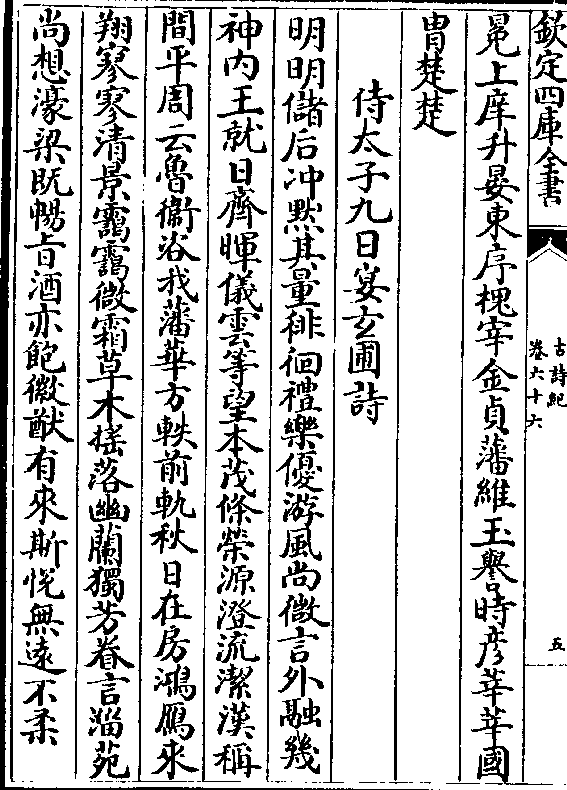 欽定四庫全書
古詩紀
卷六十六
五
冕上庠升晏東序槐宰金貞藩維玉譽時彦莘莘國
胄楚楚
侍太子九日宴玄圃詩
明明儲后冲黙其量徘徊禮樂優游風尚微言外融幾
神内王就日齊暉儀雲等望本茂條榮源澄流潔漢稱
間平周云魯衞咨我藩華方軼前軌秋日在房鴻鴈來
翔寥寥清景靄靄微霜草木揺落幽蘭獨芳眷言淄苑
尚想濠梁既暢旨酒亦飽徽猷有來斯悦無遠不柔